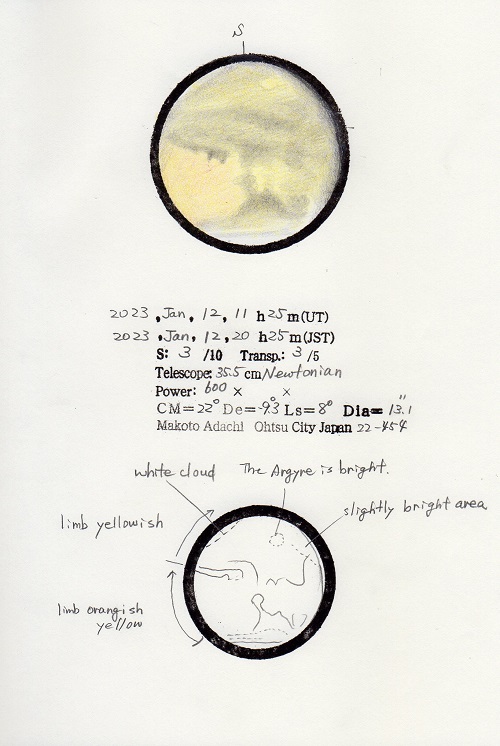 S
2023, Jan, 12, 11 h 25 m (UT)
2023, Jan, 12, 20 h 25 m (JST)
S: 3 /10 Transp.: 3 /5
Telescope: 35.5 cm Newtonian
Power: 600 × ×
CM=22° De=-9.3° Ls=8° Dia= 13.1"
Makoto Adachi Ohtsu City Japan 22-454
white cloud The Argyre is bright.
slightly bright area
limb yellowish
limb orangish
yellow